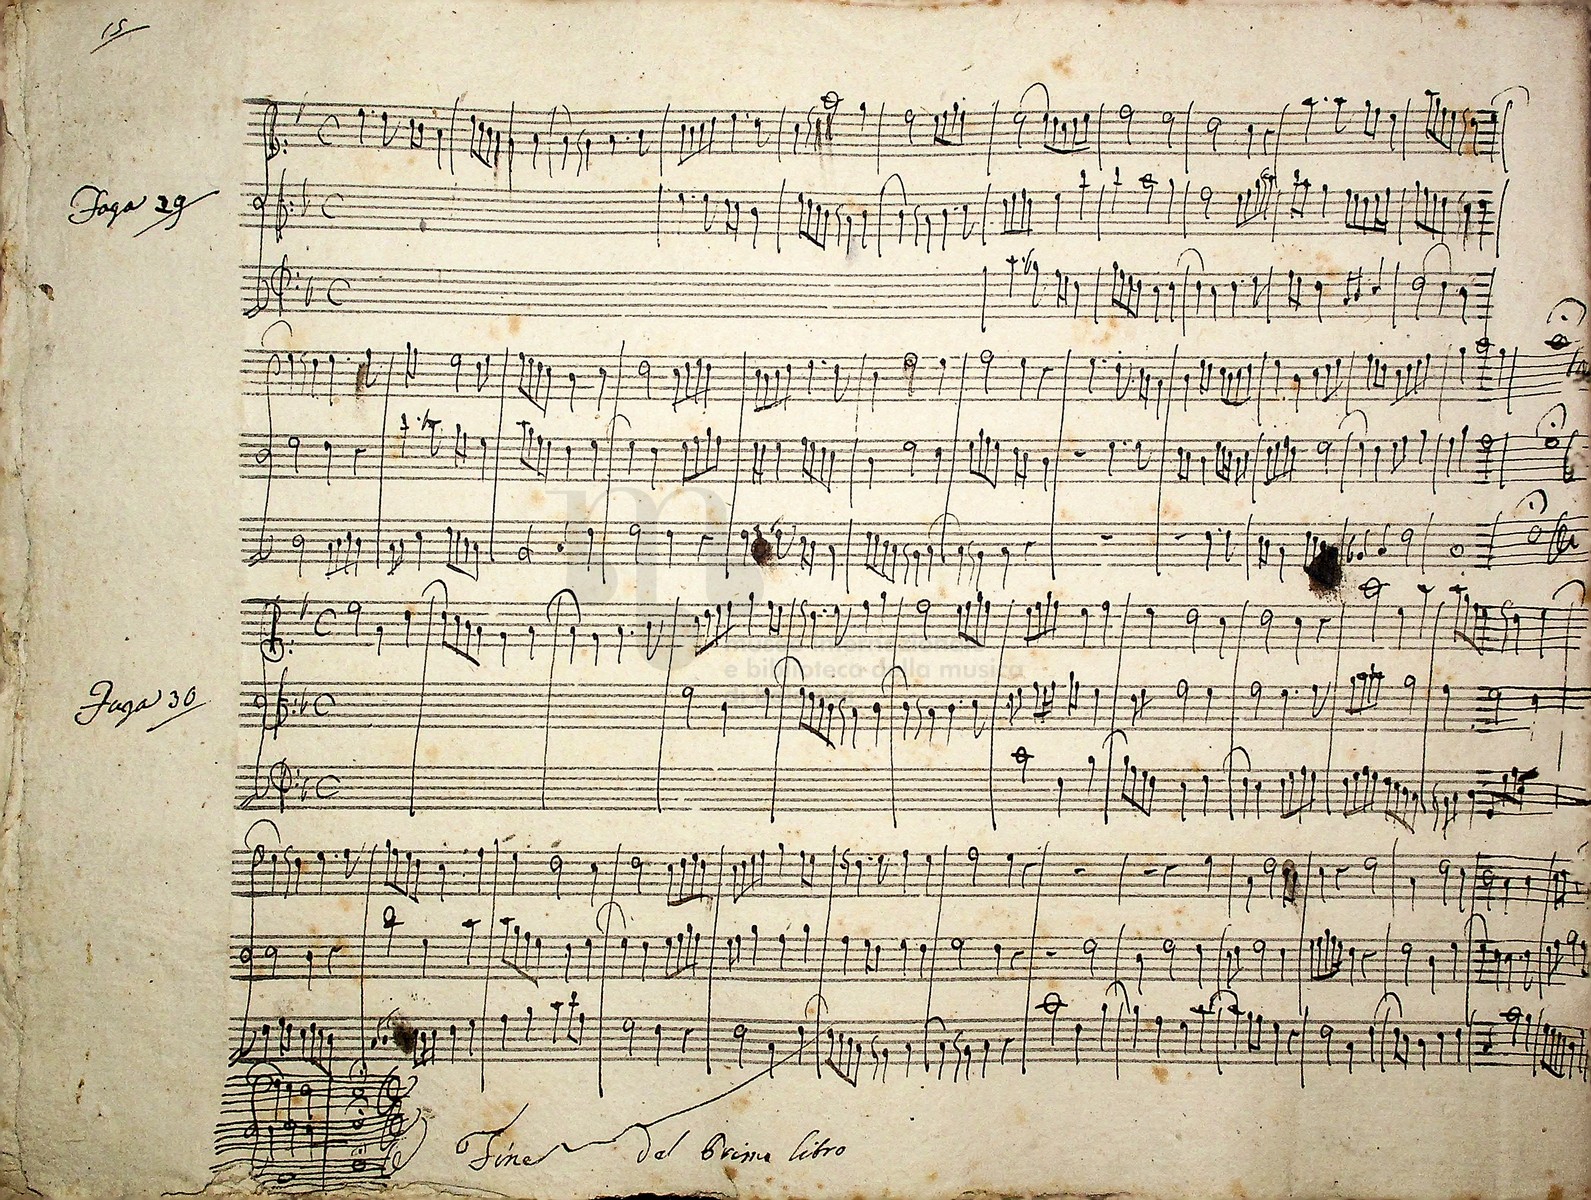 15
Fuga 29
museo internazionale
e biblioteca della musica
Fuga 30
Fine del Primo libro